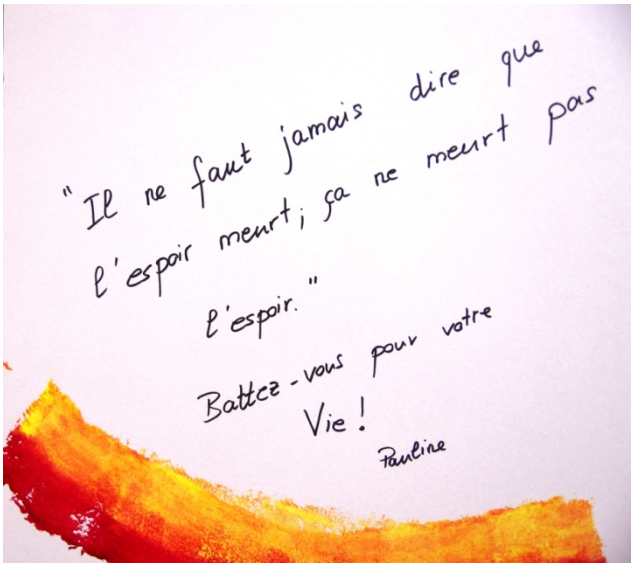 "Il ne faut jamais dire que
l'espoir meurt; ça ne meurt pas
l'espoir."
Battez-vous pour votre
Vie !
Pauline